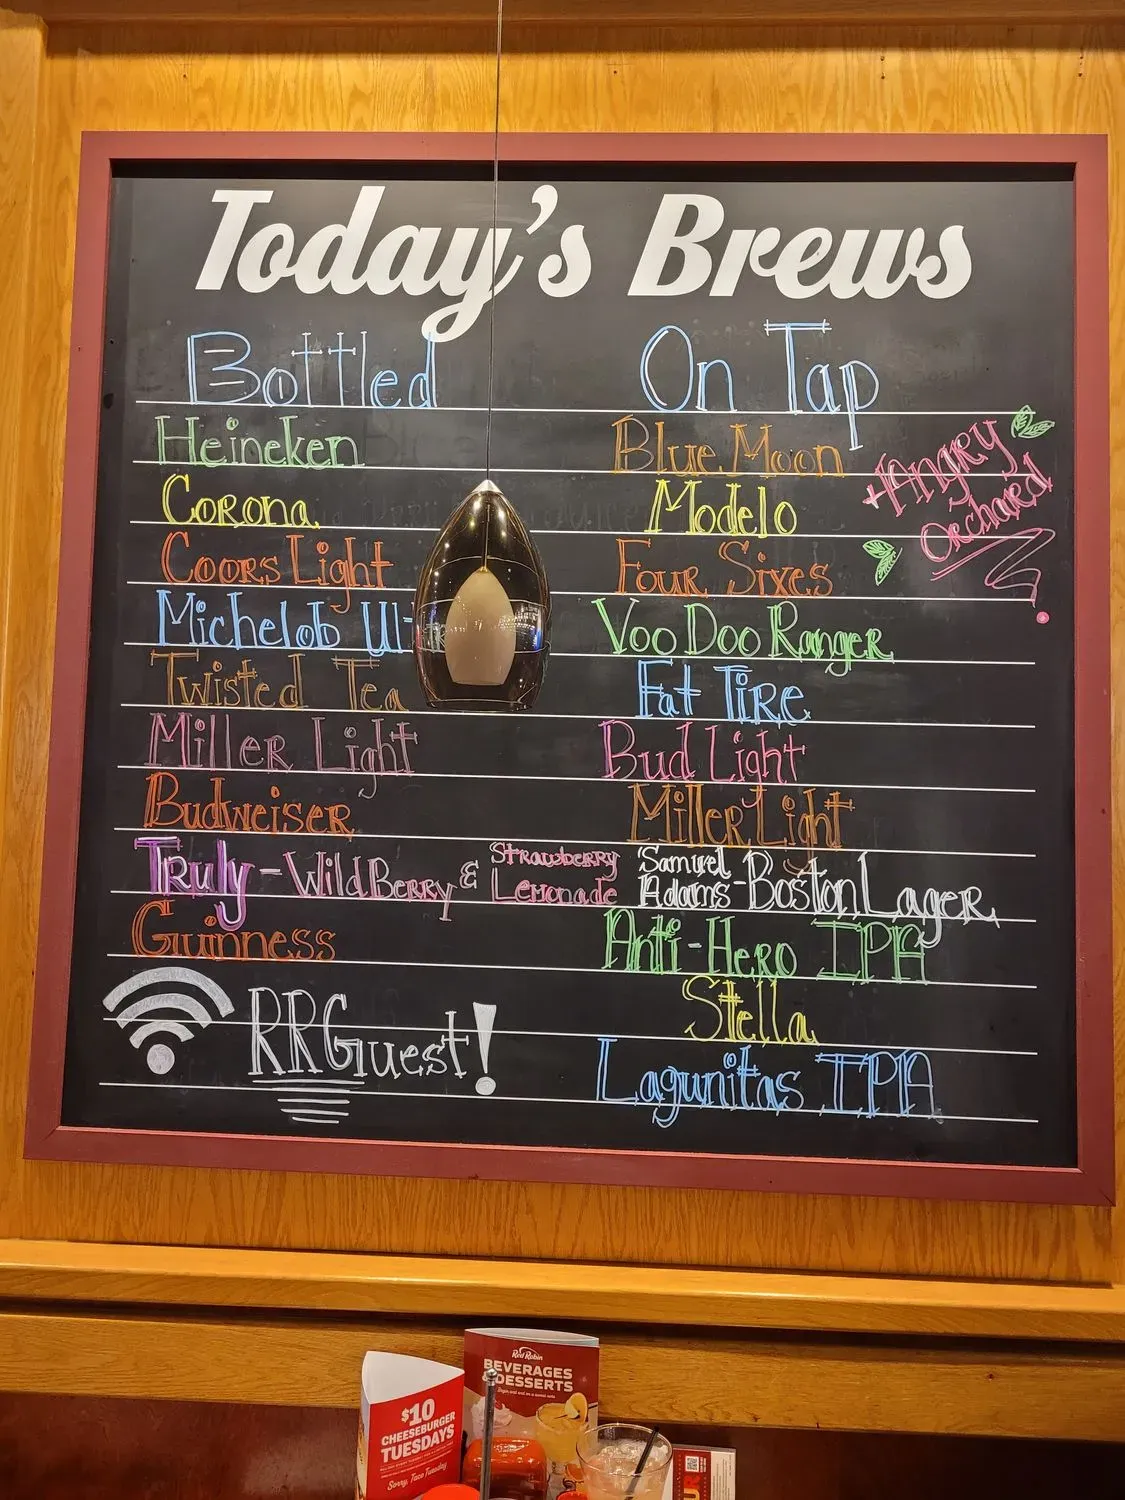 Today's Brews
Bottled
Heineken
Corona
Coors Light
Michelob Ul
Twisted Tea
Miller Light
Budweiser
Truly - Wild Berry & Strawberry Lemonade
Guinness
RRGuest!
On Tap
Blue Moon
Modelo
Four Sixes
VooDoo Ranger
Fat Tire
Bud Light
Miller Light
Samuel Adams - Boston Lager
Anti-Hero IPA
Stella
Lagunitas IPA
+ Angry
Orchard
$10
CHEESEBURGER
TUESDAYS
Sorry, Taco Tuesday
Red Robin
BEVERAGES
& DESSERTS